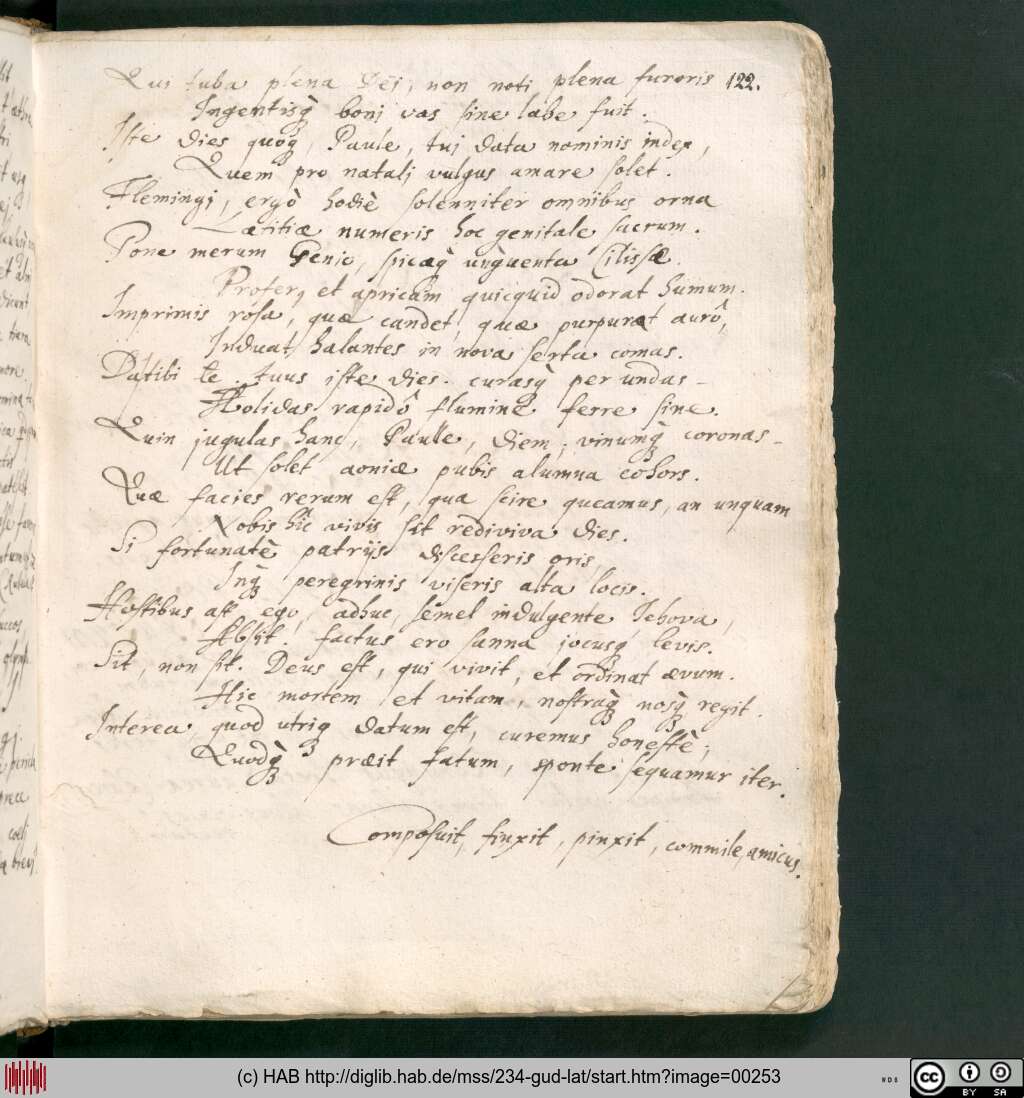 122.
Qui tuba plena Dei, non noti plena furoris
Ingentisq́ boni vas sine labe fuit.
Iste dies quoq́, Paule, tuj data nominis index,
Quem pro natalj vulgus amare solet.
Flemingj, ergò hodiè solenniter omnibus orna
Lætitiæ numeris hoc genitale sacrum.
Pone merum Genio, spicæq́ unguenta Cilissæ
Profer, et apricam quicquid odorat humum.
Imprimis rosa, quæ candet, quæ purpurat aurô,
Induat halantes in nova serta comas.
Da tibi te. tuus iste dies. curasq́ per undas
Æolidas rapidô flumine ferre sine.
Quin jugulas hanc, Paulle, diem, vinumq́ coronas
Ut solet aoniæ pubis alumna cohors.
Quæ facies rerum est, qua scire queamus, an unquam
Nobis hîc vivis sit rediviva dies.
Si fortunatè patrijs discesseris oris,
Inq́ peregrinis viseris alta locis.
Hostibus ast ego, adhuc, semel indulgente Iehova,
Absit. factus ero sanna jocusq́ levis.
Sit, non sit. Deus est, qui vivit, et ordinat ævum.
Hic mortem et vitam, nostraq́ nosq́ regit.
Interea, quod utriq́ datum est, curemus honestè;
Quodq́ præit fatum, sponte sequamur iter.
Composuit, finxit, pinxit, commile, amicus.
(c) HAB http://diglib.hab.de/mss/234-gud-lat/start.htm?image=00253
cc BY SA